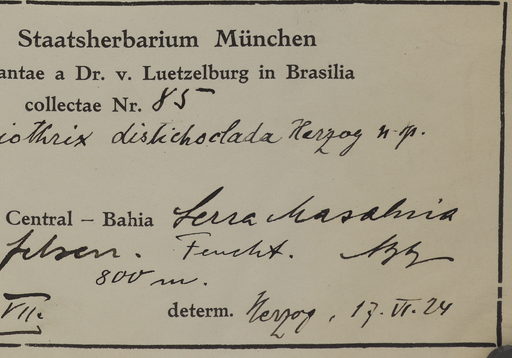 Staatsherbarium München
antae a Dr. v. Luetzelburg in Brasilia
collectae Nr. 85
iothrix distichoclada Herzog n. sp.
Central – Bahia Serra
felsen. Feucht.
800 m.
VII. determ. Herzog, 17. VI. 24